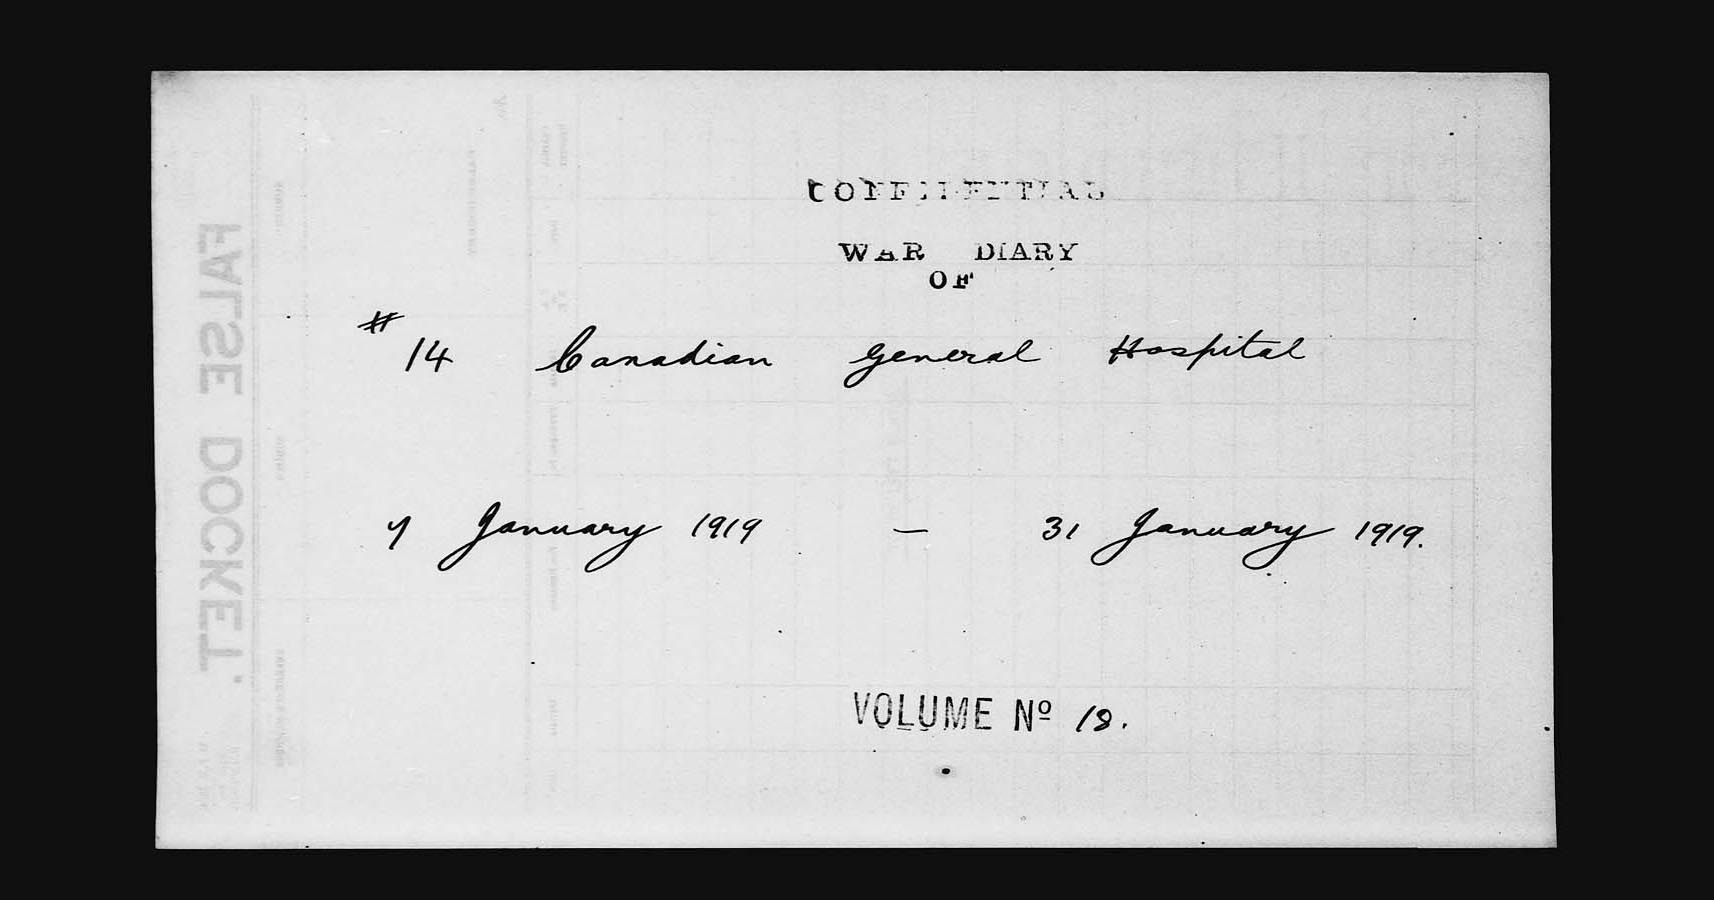 CONFIDENTIAL
WAR DIARY
OF
# 14 Canadian General Hospital
1 January 1919 — 31 January 1919.
VOLUME Nº 18.
FALSE DOCKET